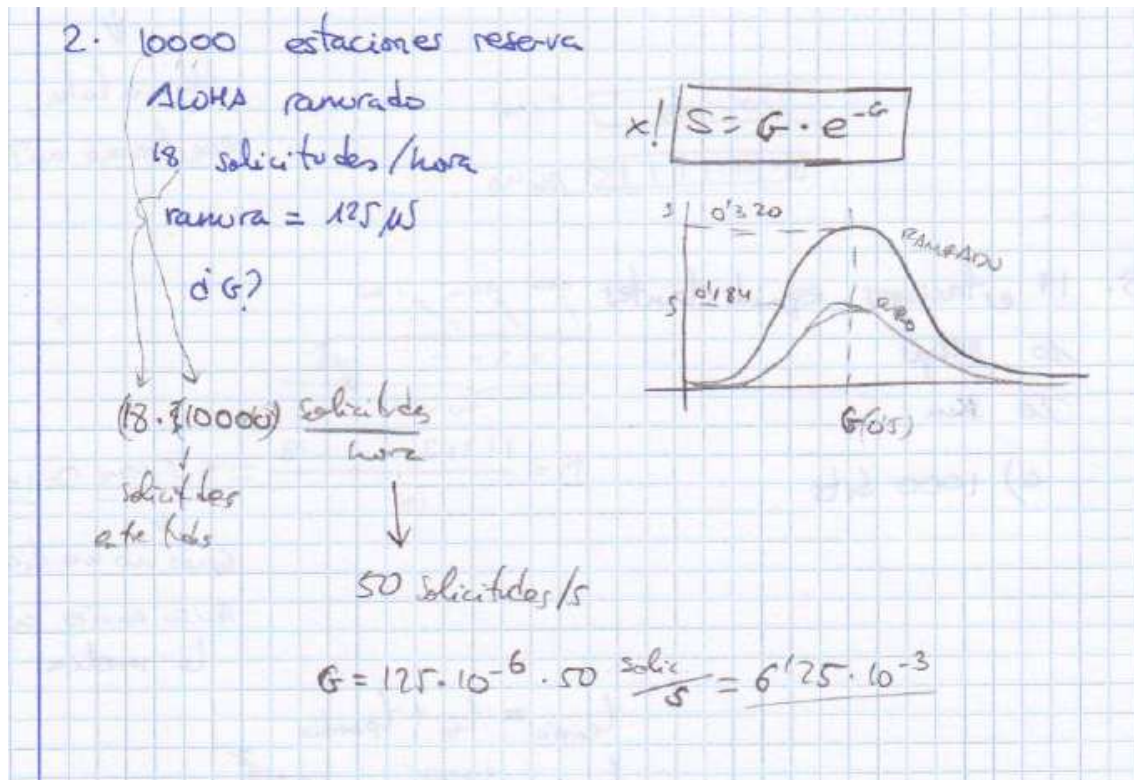 2. 10000 estaciones reserva
ALOHA ranurado
18 solicitudes/hora
ranura = 125 µs
¿G?
x! S = G · e^-G
S 0'320 RANURADO
S 0'184
G(0'5)
(18 · 10000) solicitudes
hora
solicitudes
entre todos
50 solicitudes/s
G = 125 · 10^-6 · 50 solic/s = 6'25 · 10^-3